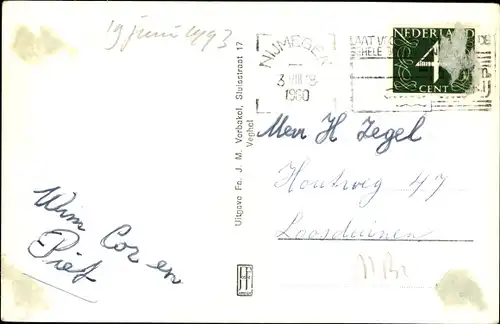 19 juni 1993
NIJMEGEN
3 VIII 19
1960
LAAT
DE
GEHELE
NEDERLAND
4
CENT
Uitgave Fa. J. M. Verbakel, Sluisstraat 17
Veghel
Wim Cor en
Piet
Mevr H Zegel
Houtweg 47
Loosduinen
JJBr